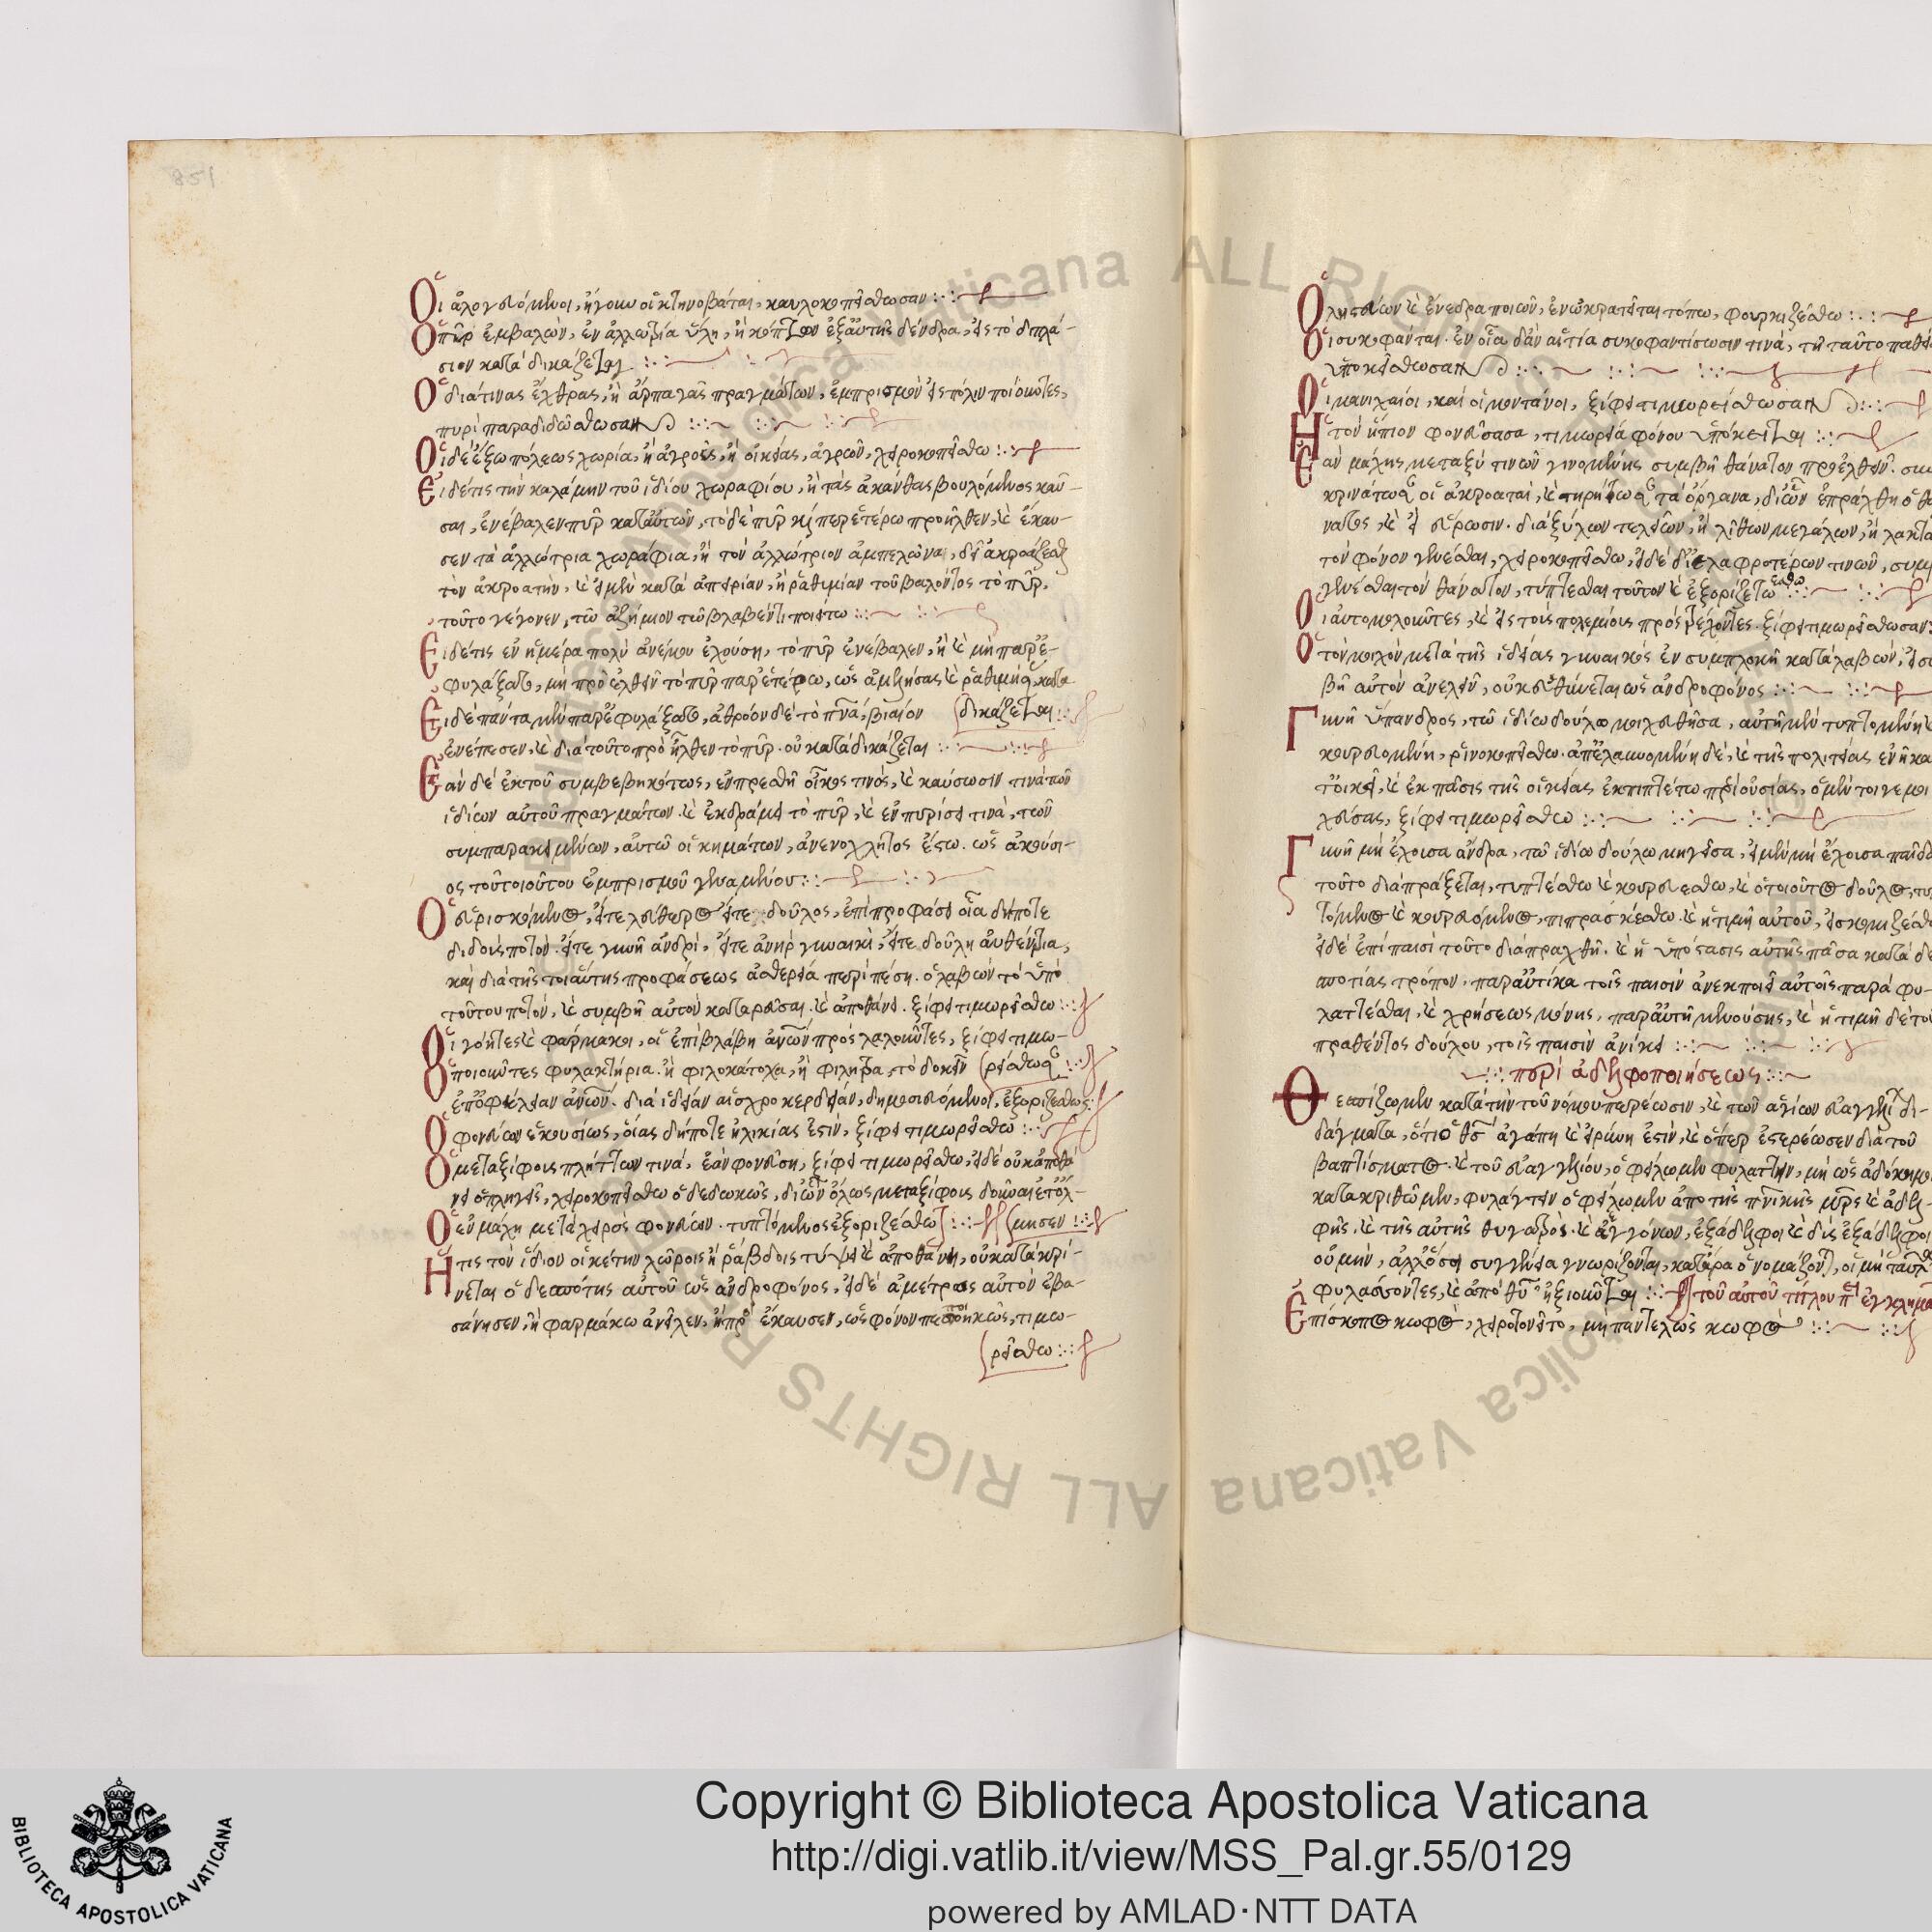 851
Οἱ ἀλογευόμενοι, ἤγουν οἱ κτηνοβάται, καυλοκοπείσθωσαν
Ὁ πῦρ ἐμβαλὼν, ἐν ἀλλωτρία ὕλη, ἢ κόπτων ἐξ αὐτῆς δένδρα, εἰς τὸ διπλά-
σιον καταδικάζεται
Ὁ διά τινας ἔχθρας, ἢ ἁρπαγὰς πραγμάτων, ἐμπρισμὸν εἰς πόλιν ποιοῦντες,
πυρὶ παραδιδώσθωσαν
Οἱ δὲ ἔξω πόλεως χωρία, ἢ ἀγροὺς, ἢ οἰκείας, ἀγρῶν, χειροκοπείσθω
Εἰ δέ τις τὴν καλάμην τοῦ ἰδίου χωραφίου, ἢ τὰς ἀκάνθας βουλόμενος καῦ-
σαι, ἐνέβαλεν πῦρ κατ αὐτῶν, τὸ δὲ πῦρ περετέρω προῆλθεν, καὶ ἔκαυ-
σεν τὰ ἀλλώτρια χωράφια, ἢ τὸν ἀλλώτριον ἀμπελῶνα, δεῖ ἀκροάζεσθαι
τὸν ἀκροατὴν, καὶ εἰ μὲν κατὰ ἀπειρίαν, ἢ ῥαθιμίαν τοῦ βαλόντος τὸ πῦρ,
τοῦτο γέγονεν, τῶ ἀζήμιον τῶ βλαβέντι ποιείτω
Εἰ δέ τις ἐν ἡμέρα πολὺ ἀνέμου ἐχούση, τὸ πῦρ ἐνέβαλεν, ἢ καὶ μὴ παρε-
φυλάξατο, μὴ προελθεῖν τὸ πῦρ παρετέρω, ὡς ἀμελήσας καὶ ῥαθιμή κατα
Εἰ δὲ πάντα μὲν παρεφυλάξατο, ἀθρόον δὲ τὸ πνα, βιαῖον δικάζεται
ἐνέπεσεν, καὶ διατοῦτο προῆλθεν τὸ πῦρ. οὐ καταδικάζεται
Ἐὰν δὲ ἐκ τοῦ συμβεβηκότως, ἐνπρεσθῆ οἶκος τινὸς, καὶ καύσωσιν τινὰ τῶν
ἰδίων αὐτοῦ πραγμάτων. καὶ ἐκδράμει τὸ πῦρ, καὶ ἐνπυρίσει τινὰ, τῶν
συμπαρακειμένων, αὐτῶ οἰκημάτων, ἀνενοχλητος ἔστω. ὡς ἀκούσι-
ος τοῦ τοιούτου ἐμπρισμοῦ γεναμένου
Ὁ εὑρισκόμενος, εἴτε ἐλεύθερος εἴτε δοῦλος, ἐπὶ προφάσει οἵα δήποτε
διδοὶς ποτὸν. εἴτε γυνὴ ἀνδρὶ, εἴτε ἀνὴρ γυναικὶ, εἴτε δούλη αὐθέντρια,
καὶ διὰ τῆς τοιαύτης προφάσεως ἀσθενεία περιπέση. ὁ λαβὼν τὸ ὑπὸ
τούτου ποτὸν, καὶ συμβῆ αὐτὸν καταρεῦσαι. καὶ ἀποθάνει. ξίφει τιμωρείσθω
Οἱ γόητες καὶ φαρμακοι, οἱ ἐπιβλάβη ἀνων προσλαλοῦντες, ξίφει τιμω-
Ὁ ποιοῦντες φυλακτήρια. ἢ φιλοκάτοχα, ἢ φιλητρα, τὸ δοκεῖν ρείσθωσαν
ἐπ ὀφελείαν ἀνων. διὰ ἰδείαν αἰσχροκερδείαν, δημοσιευόμενοι, ἐξοριζέσθως
Ὁ φονεύων ἑκουσίως, οἵας δήποτε ἡλικίας ἐστιν, ξίφει τιμωρείσθω
Ὁ μετα ξίφοις πλήττων τινὰ, ἐὰν φονεύση, ξίφει τιμωρείσθω, εἰ δὲ οὐκ ἀποθά
νει ὁ πληγεὶς, χειροκοπείσθω ὁ δεδωκὼς, διῶν ὅλως μετα ξίφοις δοῦναι ἐτόλ-
Ὁ ἐν μάχη μετὰ χειρὸς φονεύων. τυπτόμενος ἐξοριζέσθω μησεν
Ἥτις τὸν ἴδιον οἰκέτην λώροις ἢ ῥάβδοις τύψει καὶ ἀποθάνη, οὐ κατακρί-
νεται ὁ δεσπότης αὐτοῦ ὡς ἀνδροφόνος, εἰ δὲ ἀμέτρως αὐτὸν ἐβα-
σάνησεν, ἢ φαρμάκω ἀνεῖλεν, ἢ πρὶ ἔκαυσεν, ὡς φόνον πεποιηκὼς, τιμω-
ρείσθω
Ὁ ληστεύων καὶ ἐνέδρα ποιῶν, ἐν ὧ κρατεῖται τόπω, φουρκιζέσθω
Οἱ συκοφάνται. ἐν οἵα δἂν αἰτία συκοφαντίσωσιν τινὰ, τῆ ταύτο
ὑποκείσθωσαν
Οἱ μανιχαίοι, καὶ οἱ μοντάνοι, ξίφει τιμωρείσθωσαν
Ἡ τὸν ἤπιον φονεύσασα, τιμωρεία φόνου ὑπόκειται
Ἐὰν μάχης μεταξὺ τινῶν γινομένης συμβῆ θάνατον προελθεῖν.
κρινάτωσαν οἱ ἀκροαταὶ, καὶ τηρήτωσαν τὰ ὄργανα, δι ὧν ἐπράχθη ὁ θά
νατος, καὶ εἰ εὕρωσιν. διὰ ξύλων τελείων, ἢ λίθων μεγάλων, ἢ
τὸν φόνον γενέσθαι, χειροκοπείσθω, εἰ δὲ δι ἐλαφροτέρων τινῶν,
γενέσθαι τὸν θάνατον, τύπτεσθαι τοῦτον καὶ ἐξοριζετω εσθω
Οἱ αὐτομολοῦντες, καὶ εἰς τοὺς πολεμίους προστρέχοντες. ξίφει τιμωρείσθωσαν
Ὁ τὸν μοιχὸν μετὰ τῆς ἰδείας γυναικὸς ἐν συμπλοκῆ καταλαβὼν,
βῆ αὐτὸν ἀνελεῖν, οὐκ εὐθύνεται ὡς ἀνδροφόνος
Γυνὴ ὕπανδρος, τῶ ἰδίω δούλω μοιχευθῆσα, αὐτὴ μὲν τυπτομένη
κουρευομένη, ῥινοκοπείσθω. ἀπελαυνομένη δὲ, καὶ τῆς πολιτείας ἐν ἧ κα
τοικεῖ, καὶ ἐκ πάσις τῆς οἰκείας ἐκπιπτέτω περιουσίας, ὁ μέντοιγε
χεύσας, ξίφει τιμωρείσθω
Γυνὴ μὴ ἔχοισα ἄνδρα, τῶ ἰδίω δούλω μηγεῖσα, εἰ μὲν μὴ ἔχοισα
τοῦτο διαπράξεται, τυπτέσθω καὶ κουρευεσθω, καὶ ὁ τοιοῦτος δοῦλος,
τόμενος καὶ κουρευόμενος, πιπρασκέσθω. καὶ ἡ τιμὴ αὐτοῦ,
εἰ δὲ ἐπὶ παισὶ τοῦτο διαπραχθῆ. καὶ ἡ ὑπόστασις αὐτῆς πᾶσα κατὰ
σποτίας τρόπον. παραυτίκα τοῖς παισὶν ἀνεκποιεῖ αὐτοῖς παρὰ φυ-
λατέσθαι, καὶ χρήσεως μόνης, παρ αὐτῆ μενούσης, καὶ ἡ τιμὴ δὲ
πραθέντος δούλου, τοῖς παισὶν ἀνίκει
περὶ ἀδελφοποιήσεως
Θεσπίζωμεν κατα τὴν τοῦ νόμου περέωσιν, καὶ τῶν ἁγίων εὐαγγελι δι-
δάγματα, ὅτι ὁ θς ἀγάπη καὶ εἰρήνη ἐστὶν, καὶ ὅπερ ἐστερέωσεν διὰ τοῦ
βαπτίσματος. καὶ τοῦ εὐαγγελίου, ὀφείλωμεν φυλάττην, μὴ ὡς
κατακριθῶμεν, φυλάγτειν ὀφείλωμεν ἀπὸ τῆς πνικῆς μρς καὶ ἀδελ-
φῆς. καὶ τῆς αὐτῆς θυγατρός. καὶ ἐγγόνων, ἐξάδελφοι καὶ δὶς ἐξάδελφοι
οὐμὴν, ἀλλ ὅσοι συγγενεῖσα γνωρίζονται, κατάρα ὀνομάζονται, οἱ μὴ
φυλάσσοντες, καὶ ἀπὸ θυ ἠξιοῦται τοῦ αὐτοῦ τίτλου περὶ
Ἐπίσκοπος κωφὸς, χειροτονεῖτο, μὴ παντελῶς κωφὸς
ALL RIGHTS Biblioteca Apostolica Vaticana
BIBLIOTECA APOSTOLICA VATICANA
Copyright © Biblioteca Apostolica Vaticana
http://digi.vatlib.it/view/MSS_Pal.gr.55/0129
powered by AMLAD·NTT DATA